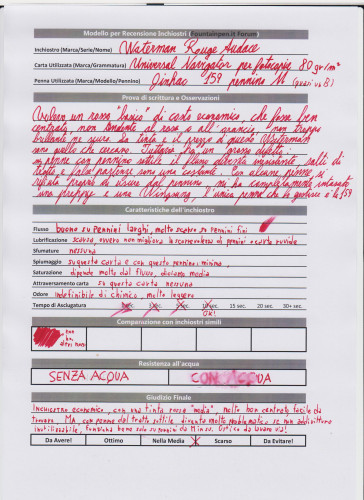 Modello per Recensione Inchiostri (Fountainpen.it Forum)
Inchiostro (Marca/Serie/Nome) Waterman Rouge Audace
Carta Utilizzata (Marca/Grammatura) Universal Navigator per fotocopie 80 gr/m²
Penna Utilizzata (Marca/Modello/Pennino) Jinhao 159 pennino M (quasi un B)
Prova di scrittura e Osservazioni
Volevo un rosso "basico" di costo economico, che fosse ben
centrato, non tendente al rosa o all'arancio, non troppo
brillante ne scuro. La tinta e il prezzo di questo Waterman
sono quello che cercavo. Tuttavia grosso difetto:
in penne con pennino sottile il flusso diventa insufficiente, salti di
tratto e false partenze sono una costante. Con alcune penne si
rifiuta di uscire dal pennino, mi ha completamente intasato
una preppy e una Wingsung. L'unica penna che lo gestisce è la 159
Caratteristiche dell'inchiostro
Flusso buono su pennini larghi, molto scarso su pennini fini
Lubrificazione scarsa, ovvero non migliora la scorrevolezza di pennini o carta ruvida
Sfumature nessuna
Spiumaggio su questa carta e con questo pennino: minimo
Saturazione dipende molto dal flusso, diciamo media
Attraversamento carta su questa carta nessuno
Odore indefinibile di chimico, molto leggero
Tempo di Asciugatura 10 sec. 15 sec. 20 sec. 30+ sec.
OK!
Comparazione con inchiostri simili
non ho altri rossi
Resistenza all'acqua
SENZA ACQUA CON ACQUA
Giudizio Finale
Inchiostro economico, con una tinta rossa "media", molto ben centrata facile da
trovare, MA con penne dal tratto sottile diventa molto problematico se non addirittura
inutilizzabile, funziona bene solo su pennini da M in su.
Da Avere! Ottimo Nella Media Scarso Da Evitare!